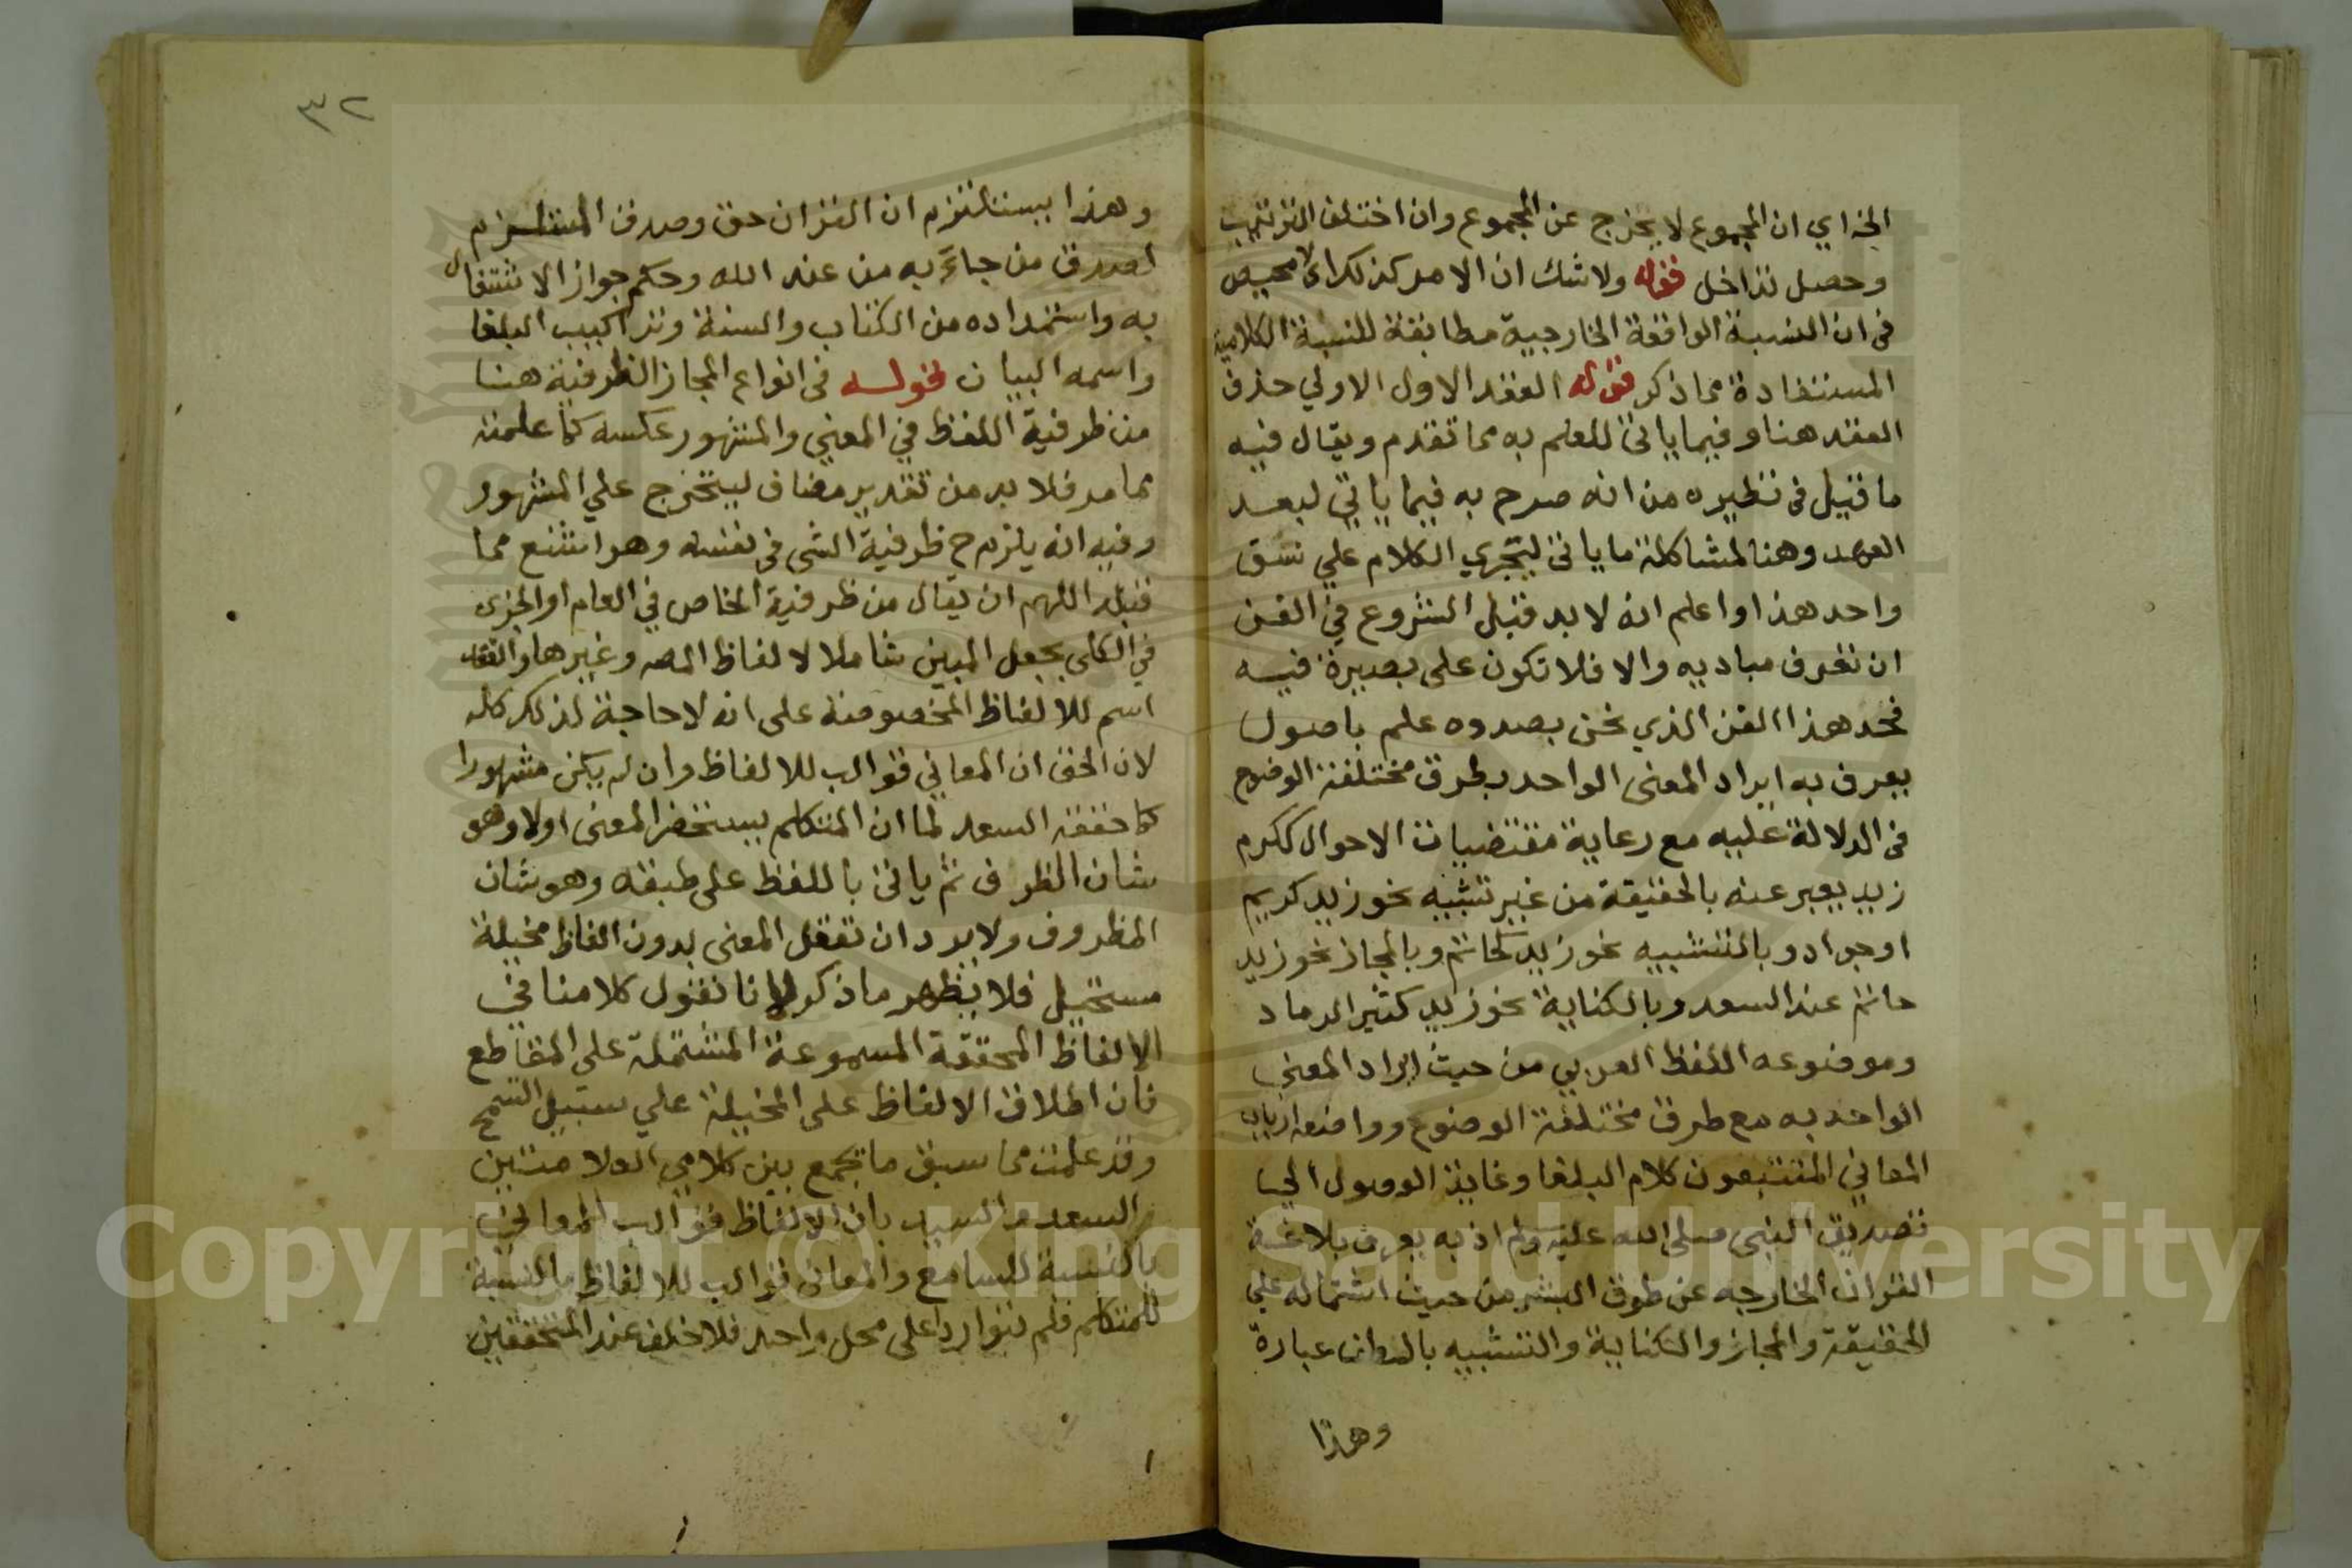 الخ اي ان المجموع لا يخرج عن المجموع وان اختلف الترتيب
وحصل تداخل قوله ولا شك ان الامر كذلك اي لا محيص
في ان النسبة الواقعة الخارجية مطابقة للنسبة الكلامية
المستفادة مما ذكر قوله العقد الاول الاولي حذف
العقد هنا وفيما ياتي للعلم به مما تقدم ويقال فيه
ما قيل في نظيره من انه صرح به فيما ياتي لبعد
العهد وهنا لمشاكلة ما ياتي ليجري الكلام علي نسق
واحد هذا واعلم انه لا بد قبل الشروع في الفن
ان تعرف مباديه والا فلا تكون على بصيرة فيه
فحد هذا الفن الذي نحن بصدده علم باصول
يعرف به ايراد المعنى الواحد بطرق مختلفة الوضوح
في الدلالة عليه مع رعاية مقتضيات الاحوال ككرم
زيد يعبر عنه بالحقيقة من غير تشبيه نحو زيد كريم
او جواد وبالتشبيه نحو زيد كحاتم وبالمجاز نحو زيد
حاتم عند السعد وبالكناية نحو زيد كثير الرماد
وموضوعه اللفظ العربي من حيث ايراد المعنى
الواحد به مع طرق مختلفة الوضوح وواضعه ارباب
المعاني المتتبعون كلام البلغا وغايته الوصول الي
تصديق النبي صلى الله عليه وسلم اذ به يعرف بلاغة
القران الخارجه عن طوق البشر من حيث اشتماله علي
الحقيقة والمجاز والكناية والتشبيه عبارة
وهذا
٣٢
وهذا يستلتزم ان القران حق وصدق المستلزم
لصدق من جاء به من عند الله وحكم جواز الاشتغال
به واستمداده من الكتاب والسنة وتراكيب البلغا
واسمه البيان قوله في انواع المجاز الظرفية هنا
من ظرفية اللفظ في المعنى والمشهور عكسه كما علمته
مما مر فلا بد من تقدير مضاف ليتخرج علي المشهور
وفيه انه يلزم ح ظرفية الشي في نفسه وهو اشنع مما
قبله اللهم ان يقال من ظرفية الخاص في العام او الجزى
في الكلى بجعل المبين شاملا لالفاظ المصه وغيرها والعقد
اسم للالفاظ المخصوصة على انه لا حاجة لذلك كله
لان الحق ان المعاني قوالب للالفاظ وان لم يكن مشهورا
كما حققه السعد لما ان المتكلم يستحضر المعنى اولا وهو
شان الظرف ثم ياتي باللفظ على طبقه وهو شان
المظروف ولا يرد ان تعقل المعنى بدون الفاظ مخيلة
مستحيل فلا يظهر ما ذكر لانا نقول كلامنا في
الالفاظ المحققة المسموعة المشتملة على المقاطع
فان اطلاق الالفاظ على المخيلة علي سبيل التسمح
وقد علمت مما سبق ما يجمع بين كلامي العلامتين
السعد والسيد بان الالفاظ قوالب المعاني
بالنسبة للسامع والمعاني قوالب للالفاظ بالنسبة
للمتكلم فلم يتواردا على محل واحد فلا خلف عند المتحققين
Copyright © King Saud University